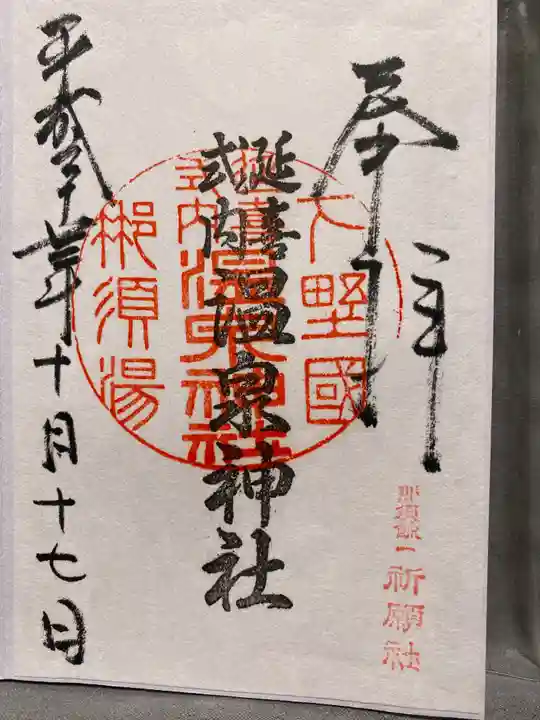 奉拝
延喜
式内
温泉神社
下野國
延喜式内温泉神社
那須湯
那須余一祈願社
平成三十年十月十七日